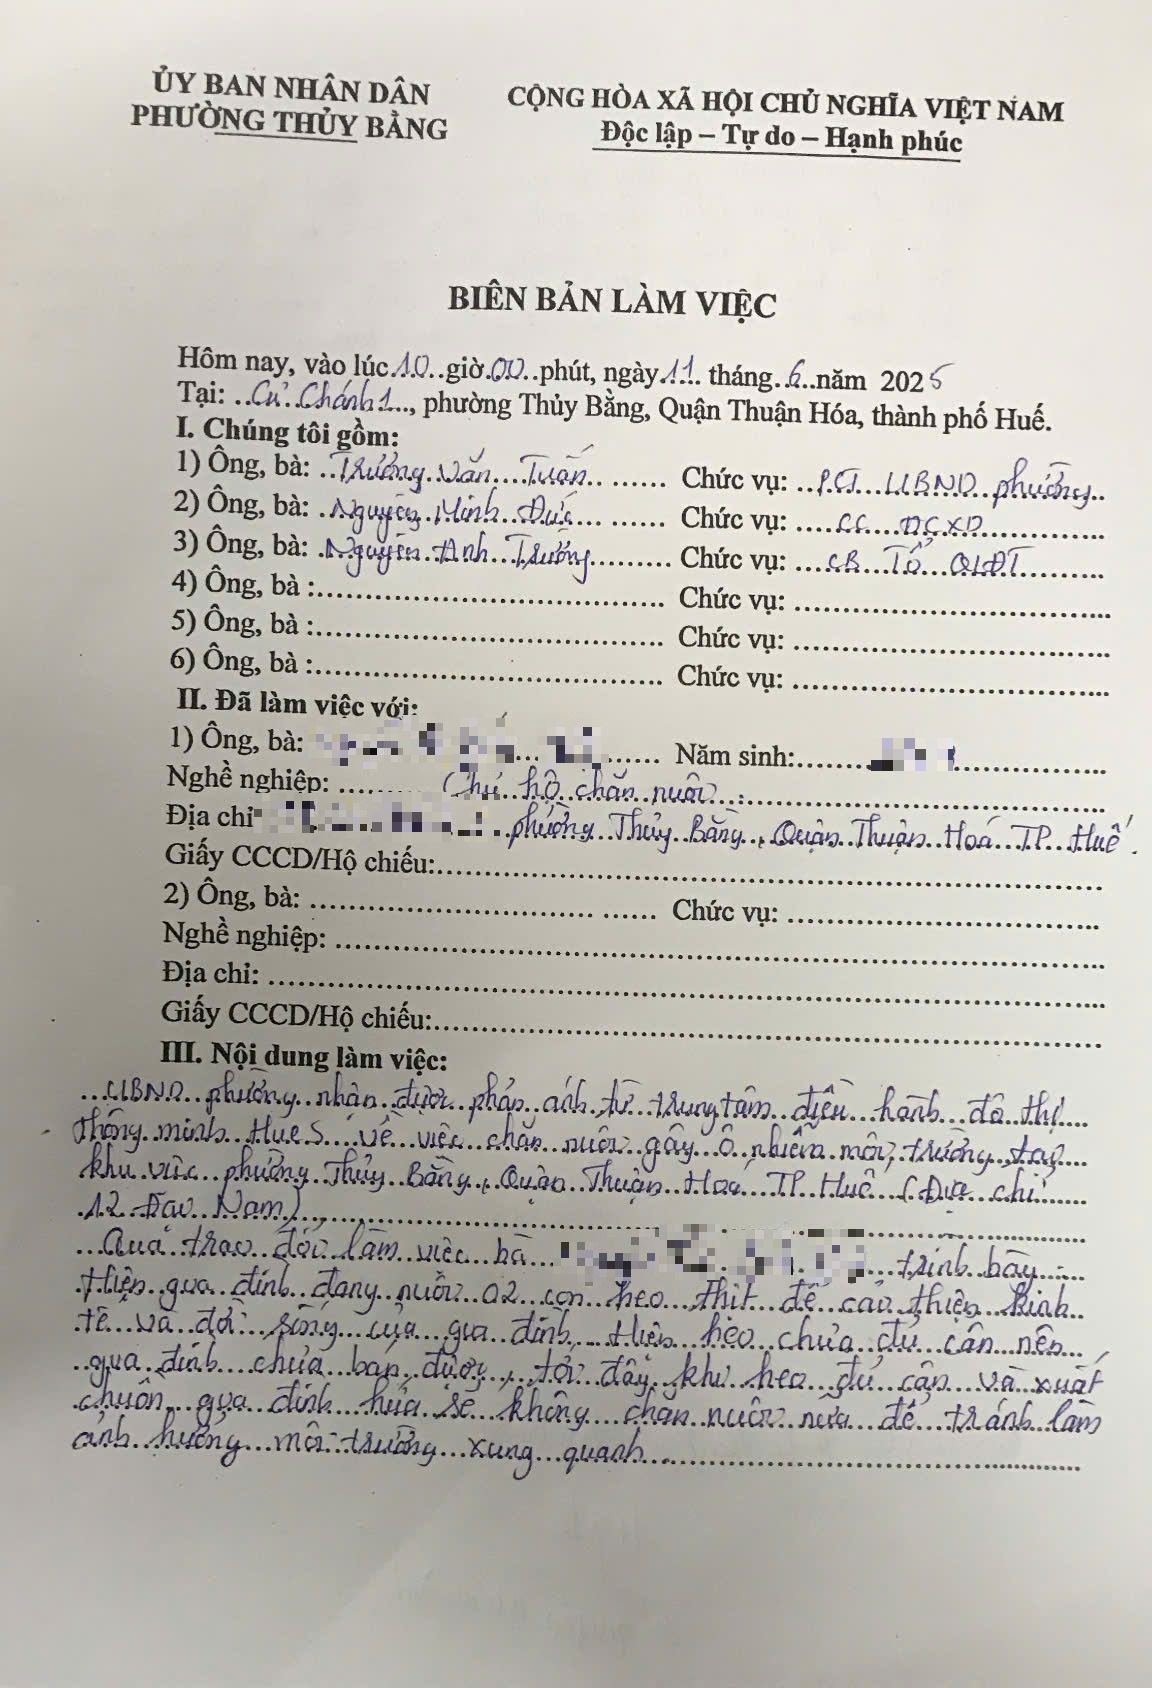 ỦY BAN NHÂN DÂN
PHƯỜNG THỦY BẰNG
CỘNG HÒA XÃ HỘI CHỦ NGHĨA VIỆT NAM
Độc lập – Tự do – Hạnh phúc
BIÊN BẢN LÀM VIỆC
Hôm nay, vào lúc 10 giờ 00 phút, ngày 11 tháng 6 năm 2025
Tại: Cư Chánh 1, phường Thủy Bằng, Quận Thuận Hóa, thành phố Huế.
I. Chúng tôi gồm:
1) Ông, bà: Trương Văn Tuấn Chức vụ: PCT UBND phường
2) Ông, bà: Nguyễn Minh Đức Chức vụ: CC ĐCXD
3) Ông, bà: Nguyễn Anh Trường Chức vụ: CB Tổ QLĐT
4) Ông, bà : Chức vụ:
5) Ông, bà : Chức vụ:
6) Ông, bà : Chức vụ:
II. Đã làm việc với:
1) Ông, bà: Năm sinh:
Nghề nghiệp: Chủ hộ chăn nuôi
Địa chỉ phường Thủy Bằng, Quận Thuận Hoá TP Huế.
Giấy CCCD/Hộ chiếu:
2) Ông, bà: Chức vụ:
Nghề nghiệp:
Địa chỉ:
Giấy CCCD/Hộ chiếu:
III. Nội dung làm việc:
UBND phường nhận được phản ánh từ trung tâm điều hành đô thị
thông minh Hue S về việc chăn nuôi gây ô nhiễm môi trường tại
khu vực phường Thủy Bằng, Quận Thuận Hoá TP Huế (Địa chỉ
12 Đào Nam),
Qua trao đổi làm việc bà trình bày
Hiện gia đình đang nuôi 02 con heo thịt để cải thiện kinh
tế và đời sống của gia đình. Hiện heo chưa đủ cân nên
gia đình chưa bán được, tới đây khi heo đủ cân và xuất
chuồn gia đình hứa sẽ không chăn nuôi nữa để tránh làm
ảnh hưởng môi trường xung quanh